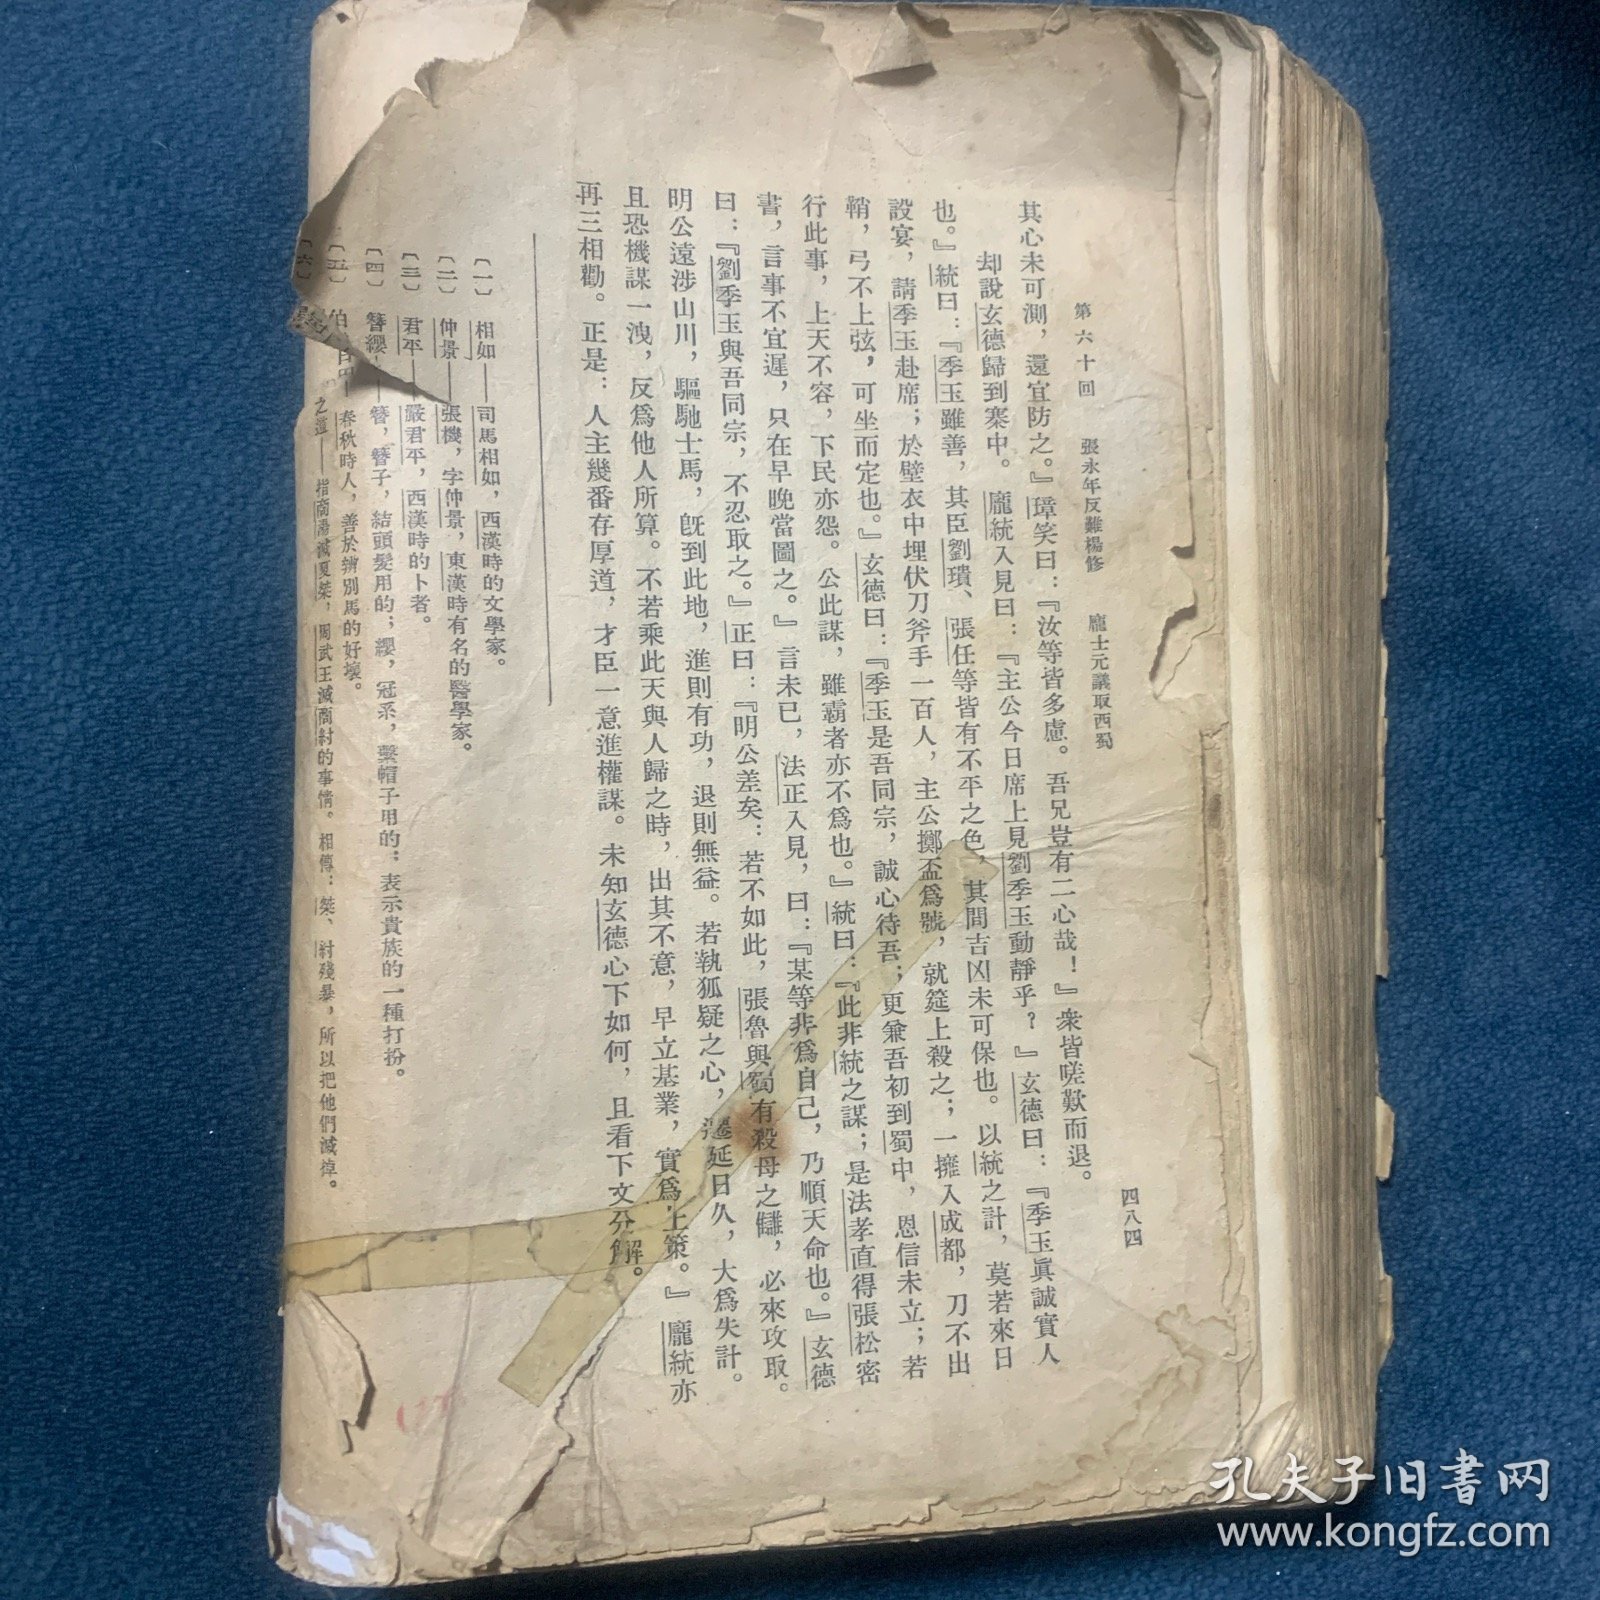 第六十回　張永年反難楊修　龐士元議取西蜀　四八四
其心未可測，還宜防之。』璋笑曰：『汝等皆多慮。吾兄豈有二心哉！』衆皆嗟歎而退。
却說玄德歸到寨中。龐統入見曰：『主公今日席上見劉季玉動靜乎？』玄德曰：『季玉眞誠實人
也。』統曰：『季玉雖善，其臣劉璝、張任等皆有不平之色，其間吉凶未可保也。以統之計，莫若來日
設宴，請季玉赴席；於壁衣中埋伏刀斧手一百人，主公擲盃爲號，就筵上殺之；一擁入成都，刀不出
鞘，弓不上弦，可坐而定也。』玄德曰：『季玉是吾同宗，誠心待吾；更兼吾初到蜀中，恩信未立；若
行此事，上天不容，下民亦怨。公此謀，雖霸者亦不爲也。』統曰：『此非統之謀；是法孝直得張松密
書，言事不宜遲，只在早晚當圖之。』言未已，法正入見，曰：『某等非爲自己，乃順天命也。』玄德
曰：『劉季玉與吾同宗，不忍取之。』正曰：『明公差矣：若不如此，張魯與蜀有殺母之讎，必來攻取。
明公遠涉山川，驅馳士馬，旣到此地，進則有功，退則無益。若執狐疑之心，遷延日久，大爲失計。
且恐機謀一洩，反爲他人所算。不若乘此天與人歸之時，出其不意，早立基業，實爲上策。』龐統亦
再三相勸。正是：人主幾番存厚道，才臣一意進權謀。未知玄德心下如何，且看下文分解。
〔一〕相如——司馬相如，西漢時的文學家。
〔二〕仲景——張機，字仲景，東漢時有名的醫學家。
〔三〕君平——嚴君平，西漢時的卜者。
〔四〕簪纓——簪，簪子，結頭髮用的；纓，冠系，繫帽子用的；表示貴族的一種打扮。
〔五〕伯　春秋時人，善於辨別馬的好壞。
〔六〕之道——指商湯滅夏桀，周武王滅商紂的事情。相傳：桀、紂殘暴，所以把他們滅掉。
孔夫子旧書网
www.kongfz.com